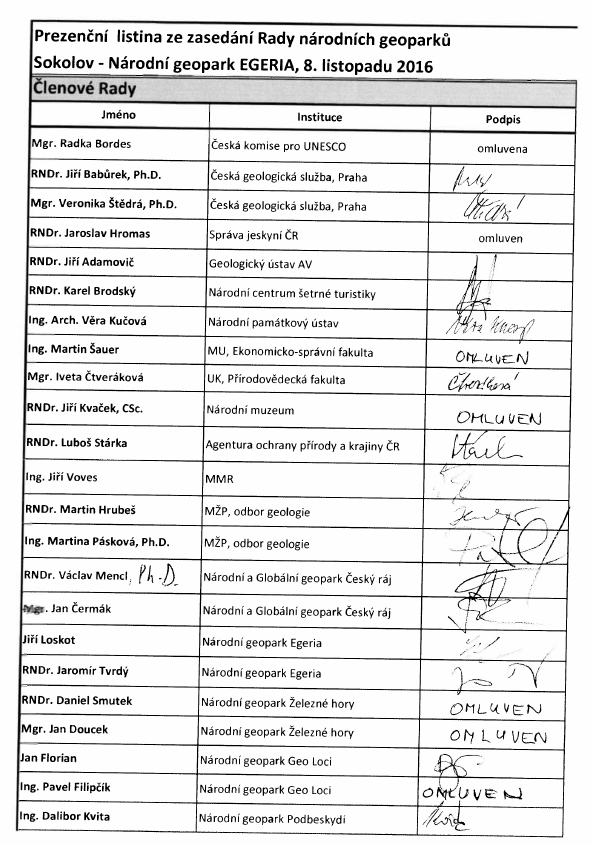 Prezenční listina ze zasedání Rady národních geoparků
Sokolov - Národní geopark EGERIA, 8. listopadu 2016
Členové Rady
Jméno Instituce Podpis
Mgr. Radka Bordes Česká komise pro UNESCO omluvena
RNDr. Jiří Babůrek, Ph.D. Česká geologická služba, Praha
Mgr. Veronika Štědrá, Ph.D. Česká geologická služba, Praha
RNDr. Jaroslav Hromas Správa jeskyní ČR omluven
RNDr. Jiří Adamovič Geologický ústav AV
RNDr. Karel Brodský Národní centrum šetrné turistiky
Ing. Arch. Věra Kučová Národní památkový ústav
Ing. Martin Šauer MU, Ekonomicko-správní fakulta OMLUVEN
Mgr. Iveta Čtveráková UK, Přírodovědecká fakulta
RNDr. Jiří Kvaček, CSc. Národní muzeum OMLUVEN
RNDr. Luboš Stárka Agentura ochrany přírody a krajiny ČR
Ing. Jiří Voves MMR
RNDr. Martin Hrubeš MŽP, odbor geologie
Ing. Martina Pásková, Ph.D. MŽP, odbor geologie
RNDr. Václav Mencl, Ph.D. Národní a Globální geopark Český ráj
Jan Čermák Národní a Globální geopark Český ráj
Jiří Loskot Národní geopark Egeria
RNDr. Jaromír Tvrdý Národní geopark Egeria
RNDr. Daniel Smutek Národní geopark Železné hory OMLUVEN
Mgr. Jan Doucek Národní geopark Železné hory OMLUVEN
Jan Florian Národní geopark Geo Loci
Ing. Pavel Filipčík Národní geopark Geo Loci OMLUVEN
Ing. Dalibor Kvita Národní geopark Podbeskydí